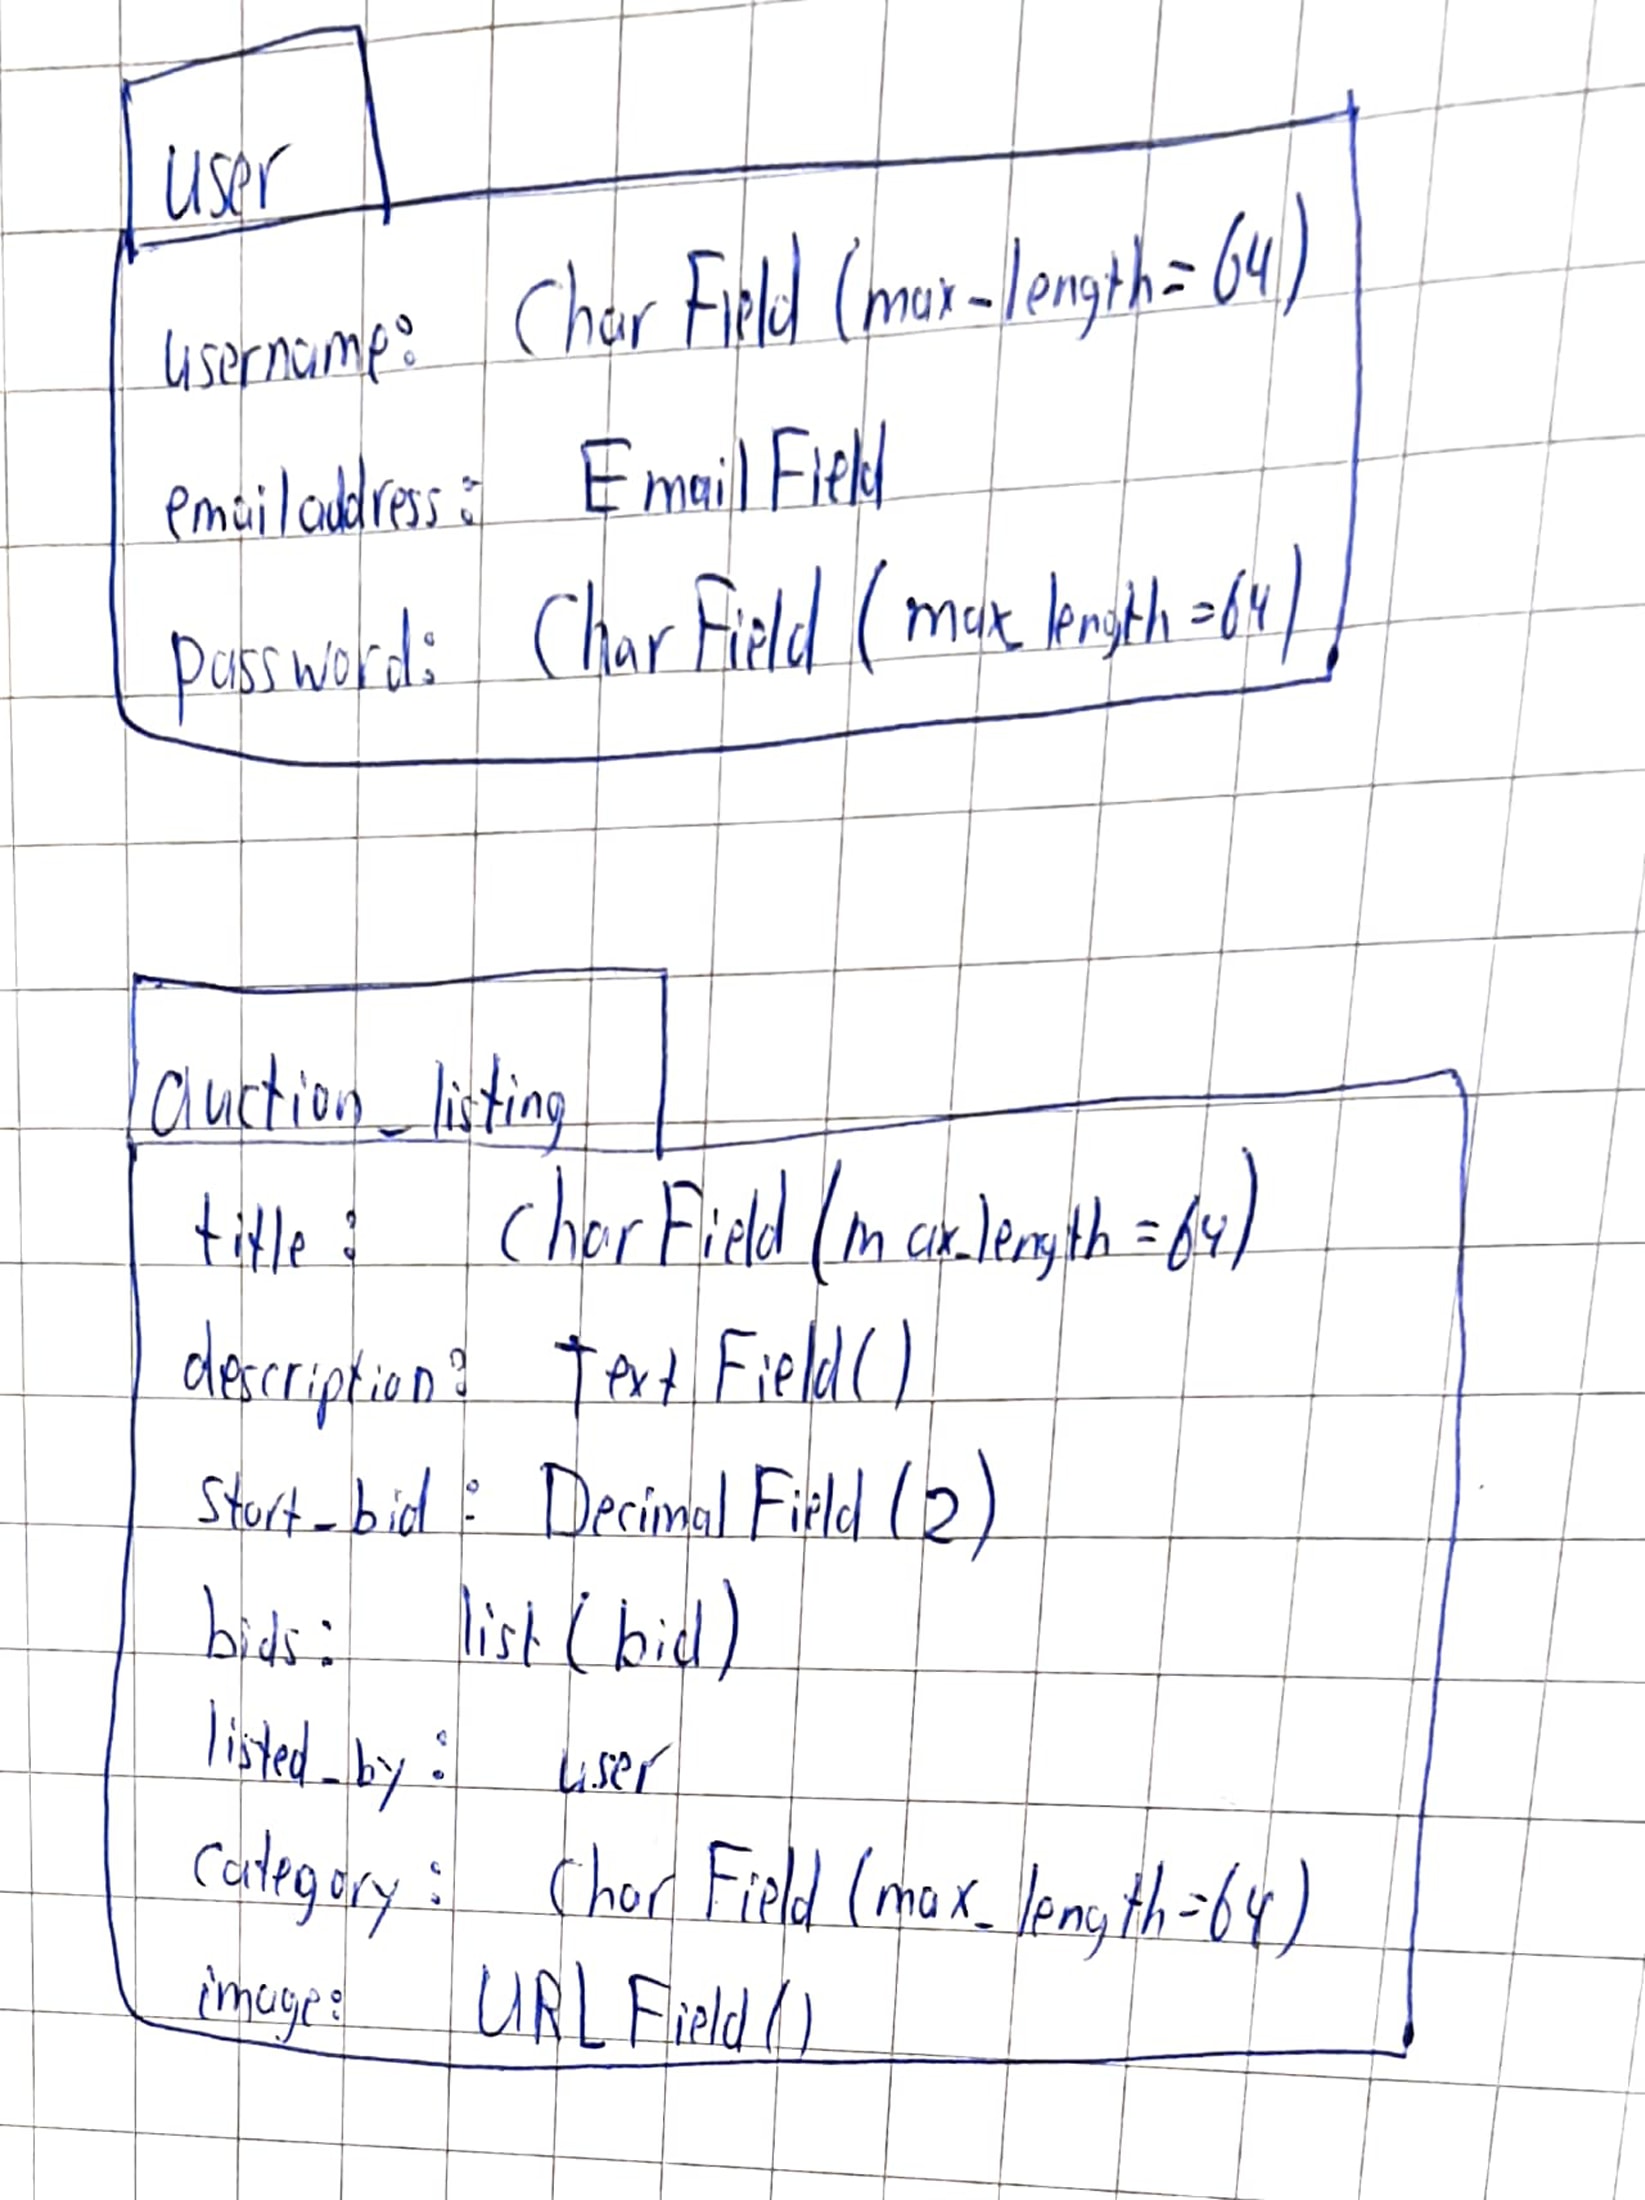 user
username: CharField (max_length=64)
emailaddress: EmailField
password: CharField (max length=64)
auction_listing
title: CharField (max_length=64)
description: TextField()
start_bid: DecimalField (2)
bids: list (bid)
listed_by: user
category: CharField (max_length=64)
image: URLField()